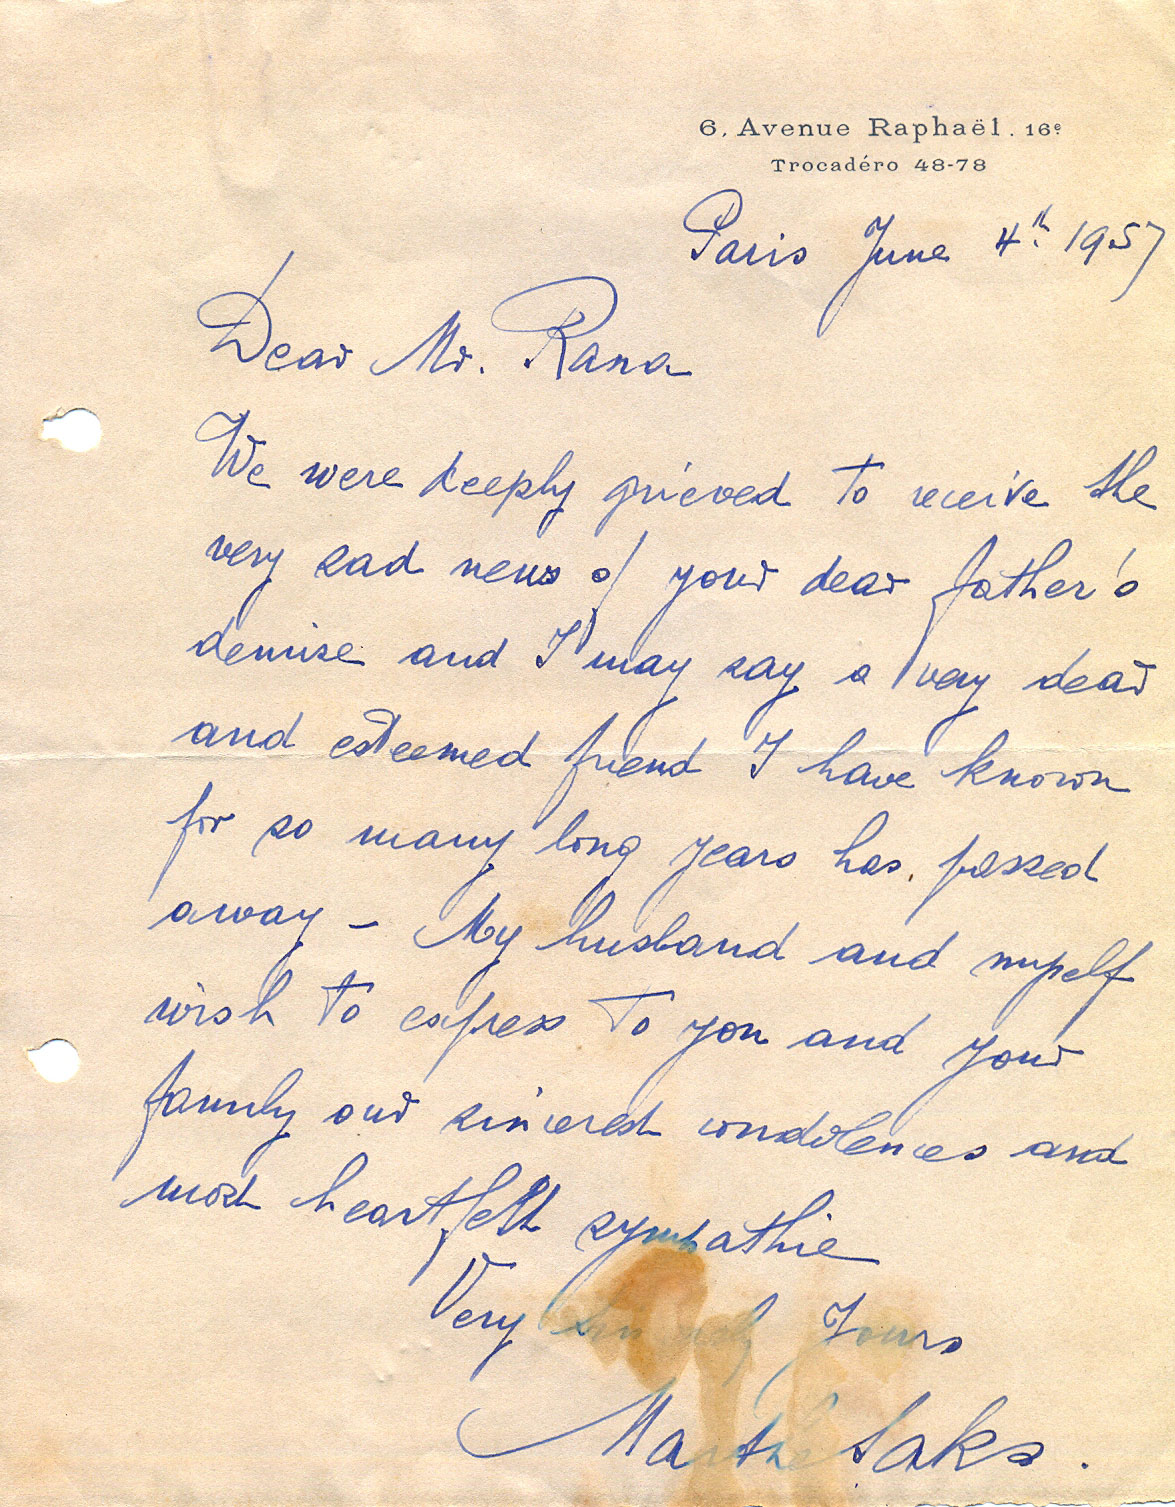 6, Avenue Raphaël. 16e
Trocadéro 48-78
Paris June 4th. 1957
Dear Mr. Rana
We were deeply grieved to receive the
very sad news of your dear father's
demise and I may say a very dear
and esteemed friend I have known
for so many long years has. passed
away - My husband and myself
wish to express to you and your
family our sincerest condolences and
most heartfelt sympathie
Very sincerely Yours
Marthe Saks.